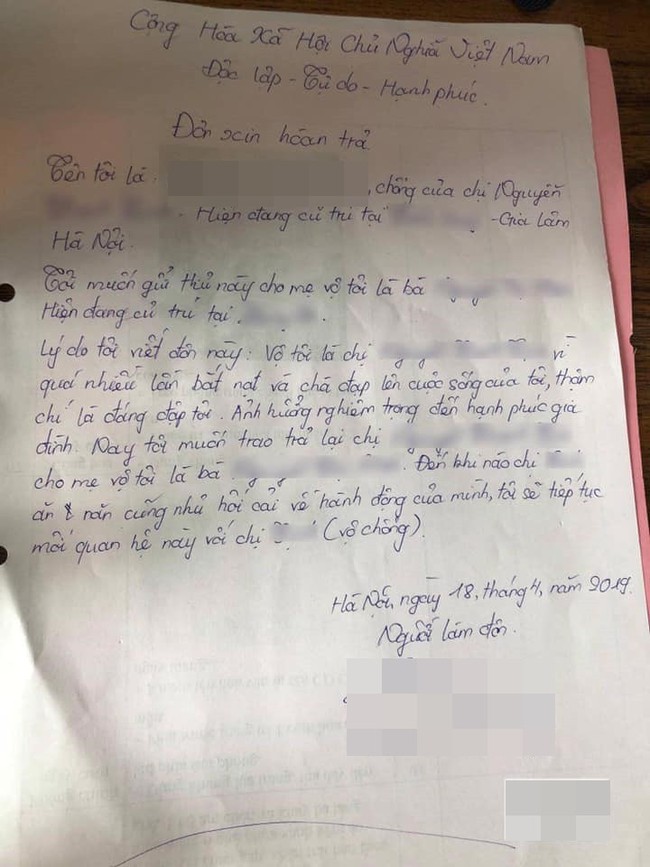 Cộng Hòa Xã Hội Chủ Nghĩa Việt Nam
Độc lập - Tự do - Hạnh phúc.
Đơn xin hoàn trả
Tên tôi là , chồng của chị Nguyễn
. Hiện đang cư trú tại - Gia Lâm
Hà Nội.
Tôi muốn gửi thư này cho mẹ vợ tôi là bà
Hiện đang cư trú tại
Lý do tôi viết đơn này: Vợ tôi là chị vì
quá nhiều lần bắt nạt và chà đạp lên cuộc sống của tôi, thậm
chí là đáng đập tôi. Ảnh hưởng nghiêm trọng đến hạnh phúc gia
đình. Nay tôi muốn trao trả lại chị
cho mẹ vợ tôi là bà . Đến khi nào chị
ăn năn cũng như hối cải về hành động của mình, tôi sẽ tiếp tục
mối quan hệ này với chị (vợ chồng).
Hà Nội, ngày 18, tháng 4, năm 2019.
Người làm đơn.